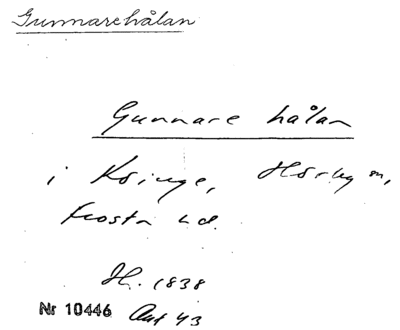 Gunnarehålan
Gunnare hålan
i Köinge, Hörby sn,
Frosta hd.
H. 1838
Nr 10446 Ant 43